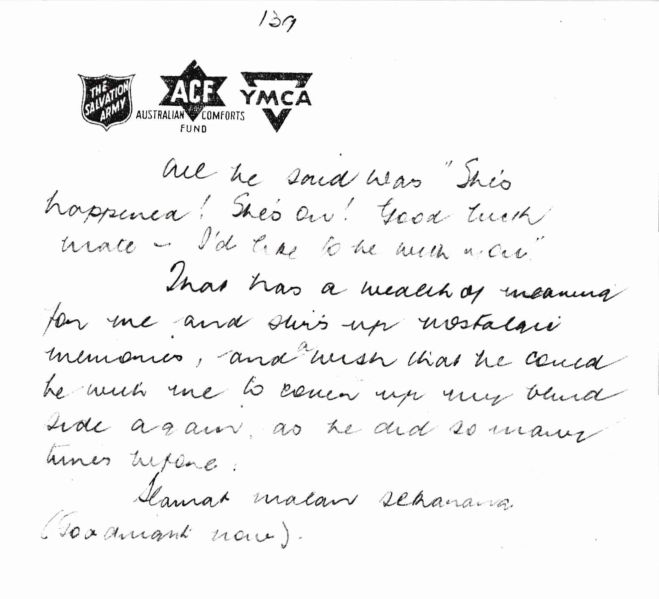 139
THE SALVATION ARMY
ACF
AUSTRALIAN COMFORTS
FUND
YMCA
All he said was "She's
happened! She's on! Good luck
mate - I'd like to be with you"
That has a wealth of meaning
for me and stirs up nostalgic
memories, and a wish that he could
be with me to cover up my blind
side again, as he did so many
times before.
Slamat malam sekarang
(Goodnight now).